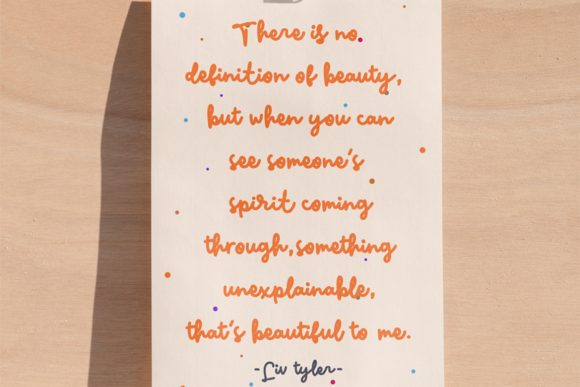 There is no
definition of beauty,
but when you can
see someone's
spirit coming
through,something
unexplainable,
that's beautiful to me.
-Liv tyler-